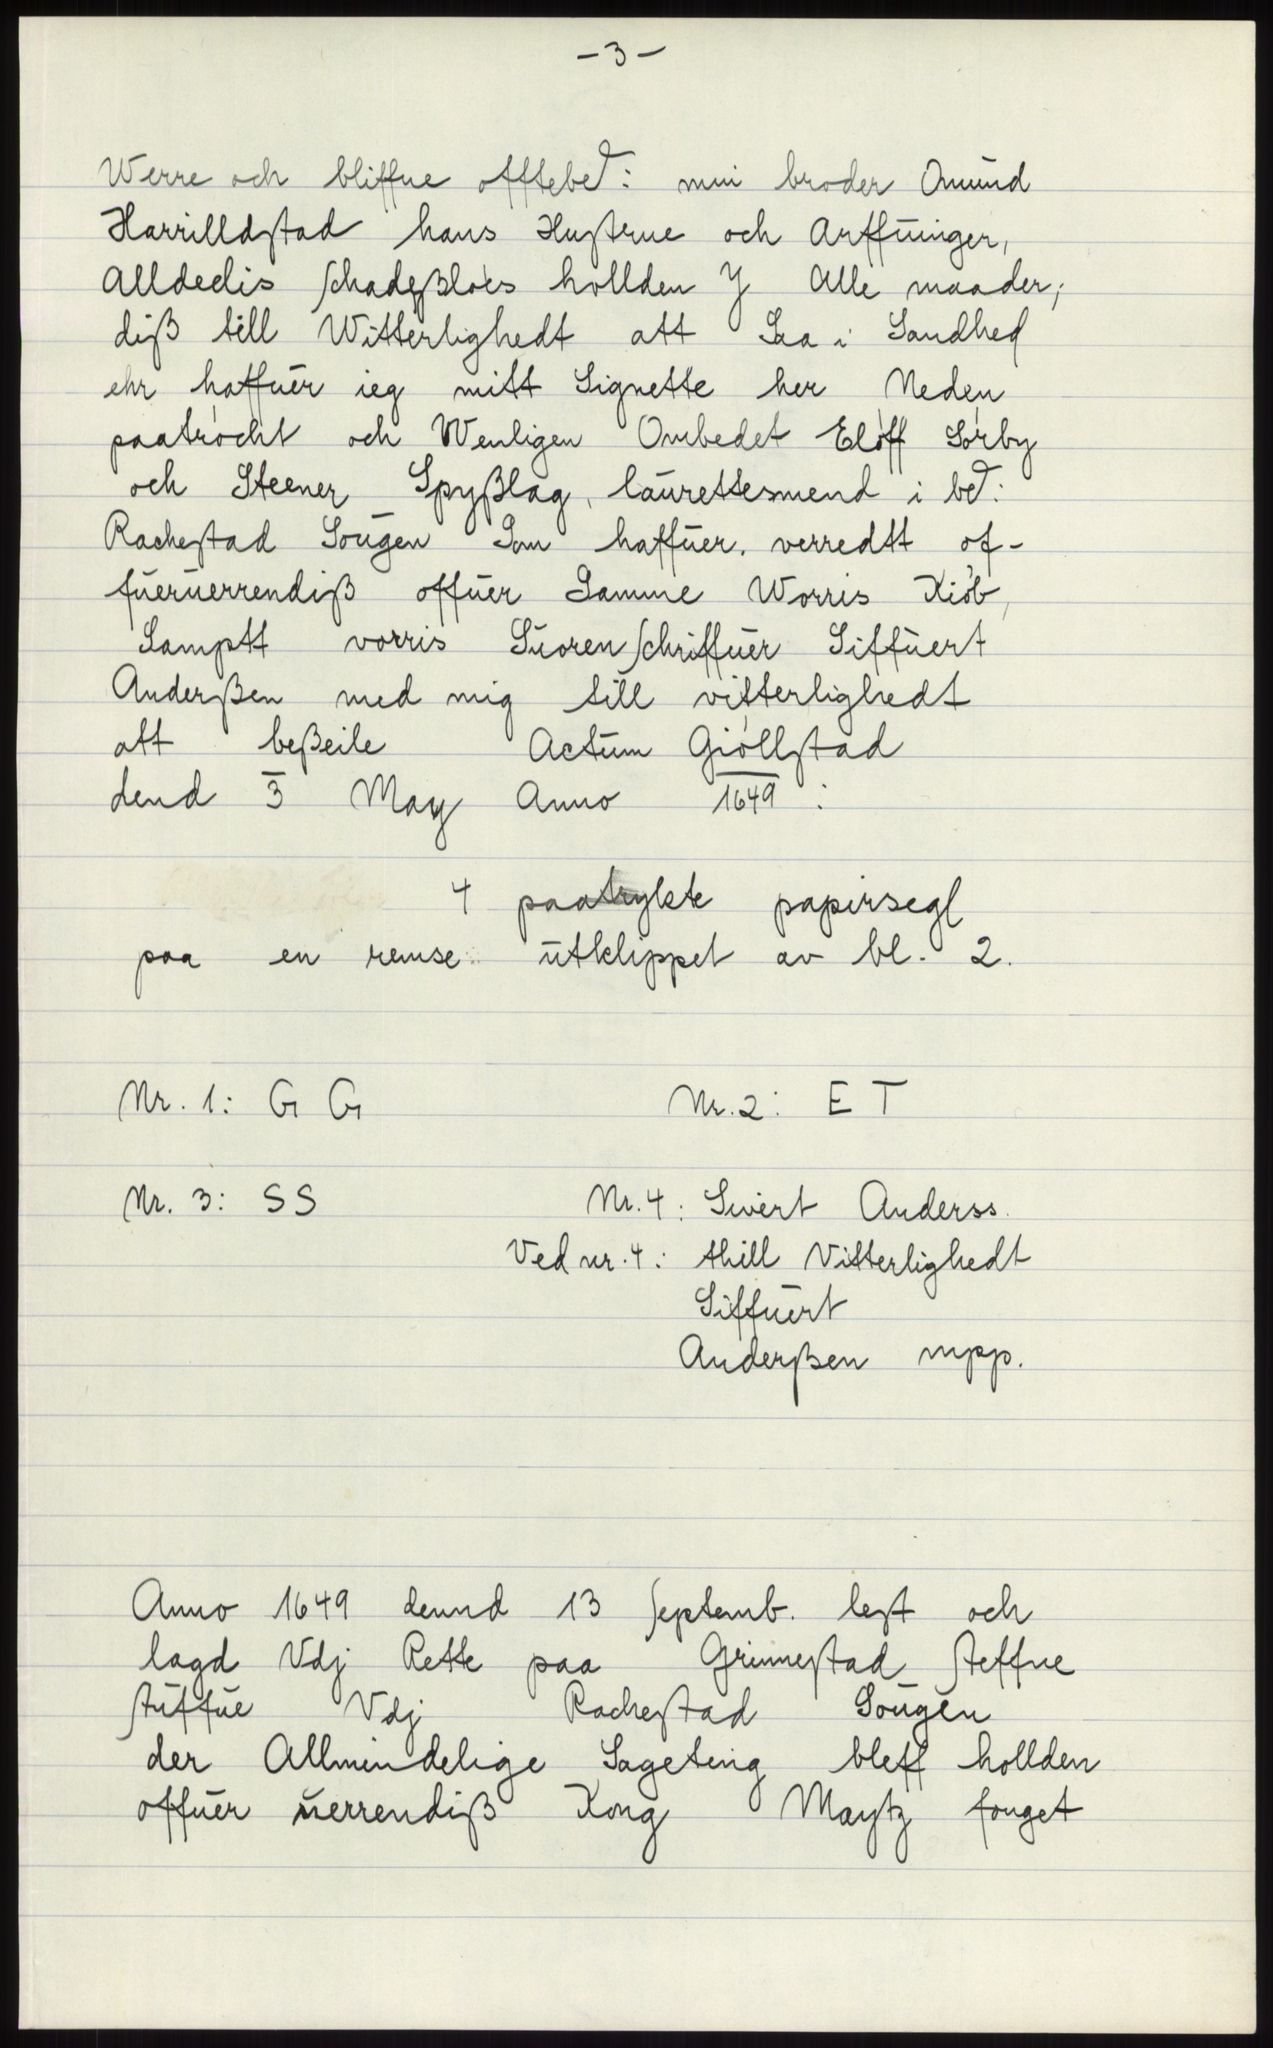 - 3 -
Werre och bliffue offtebed: min broder Omund
Harrilldstad hans Hustrue och Arffuinger,
Alldedis schadeßløes hollden Y Alle maader;
diß till Witterlighedt att Saa i Sandhed
ehr haffuer ieg mitt Signette her Neden
paatrøcht och Wenligen Ombedet Eloff Sørby
och Steener Spyßlag, laurettesmend i bed:
Rachestad Sougen Som haffuer. verredtt of-
fueruerrendiß offuer Samme Worris Kiøb,
Samptt vorris Suoren Schriffuer Siffuert
Anderßen med mig till vitterlighedt
att beßeile Actum Giøllstad
dend 3 May Anno 1649 :
4 paatrykte papirsegl
paa en remse utklippet av bl. 2.
Nr. 1: G G Nr. 2: E T
Nr. 3: S S Nr. 4: Sivert Anderss.
Ved nr. 4: thill Vitterlighedt
Siffuert
Anderßen mpp.
Anno 1649 dennd 13 Septemb. lest och
lagd Vdj Rette paa Grinnestad steffne
stuffue Vdj Rachestad Sougen
der Allmindelige Sageting bleff hollden
offuer uerrendiß Kong Maytz fouget